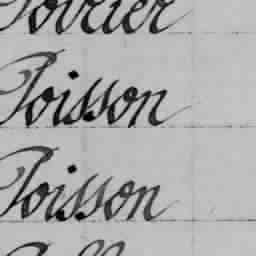 Poirier
Poisson
Poisson